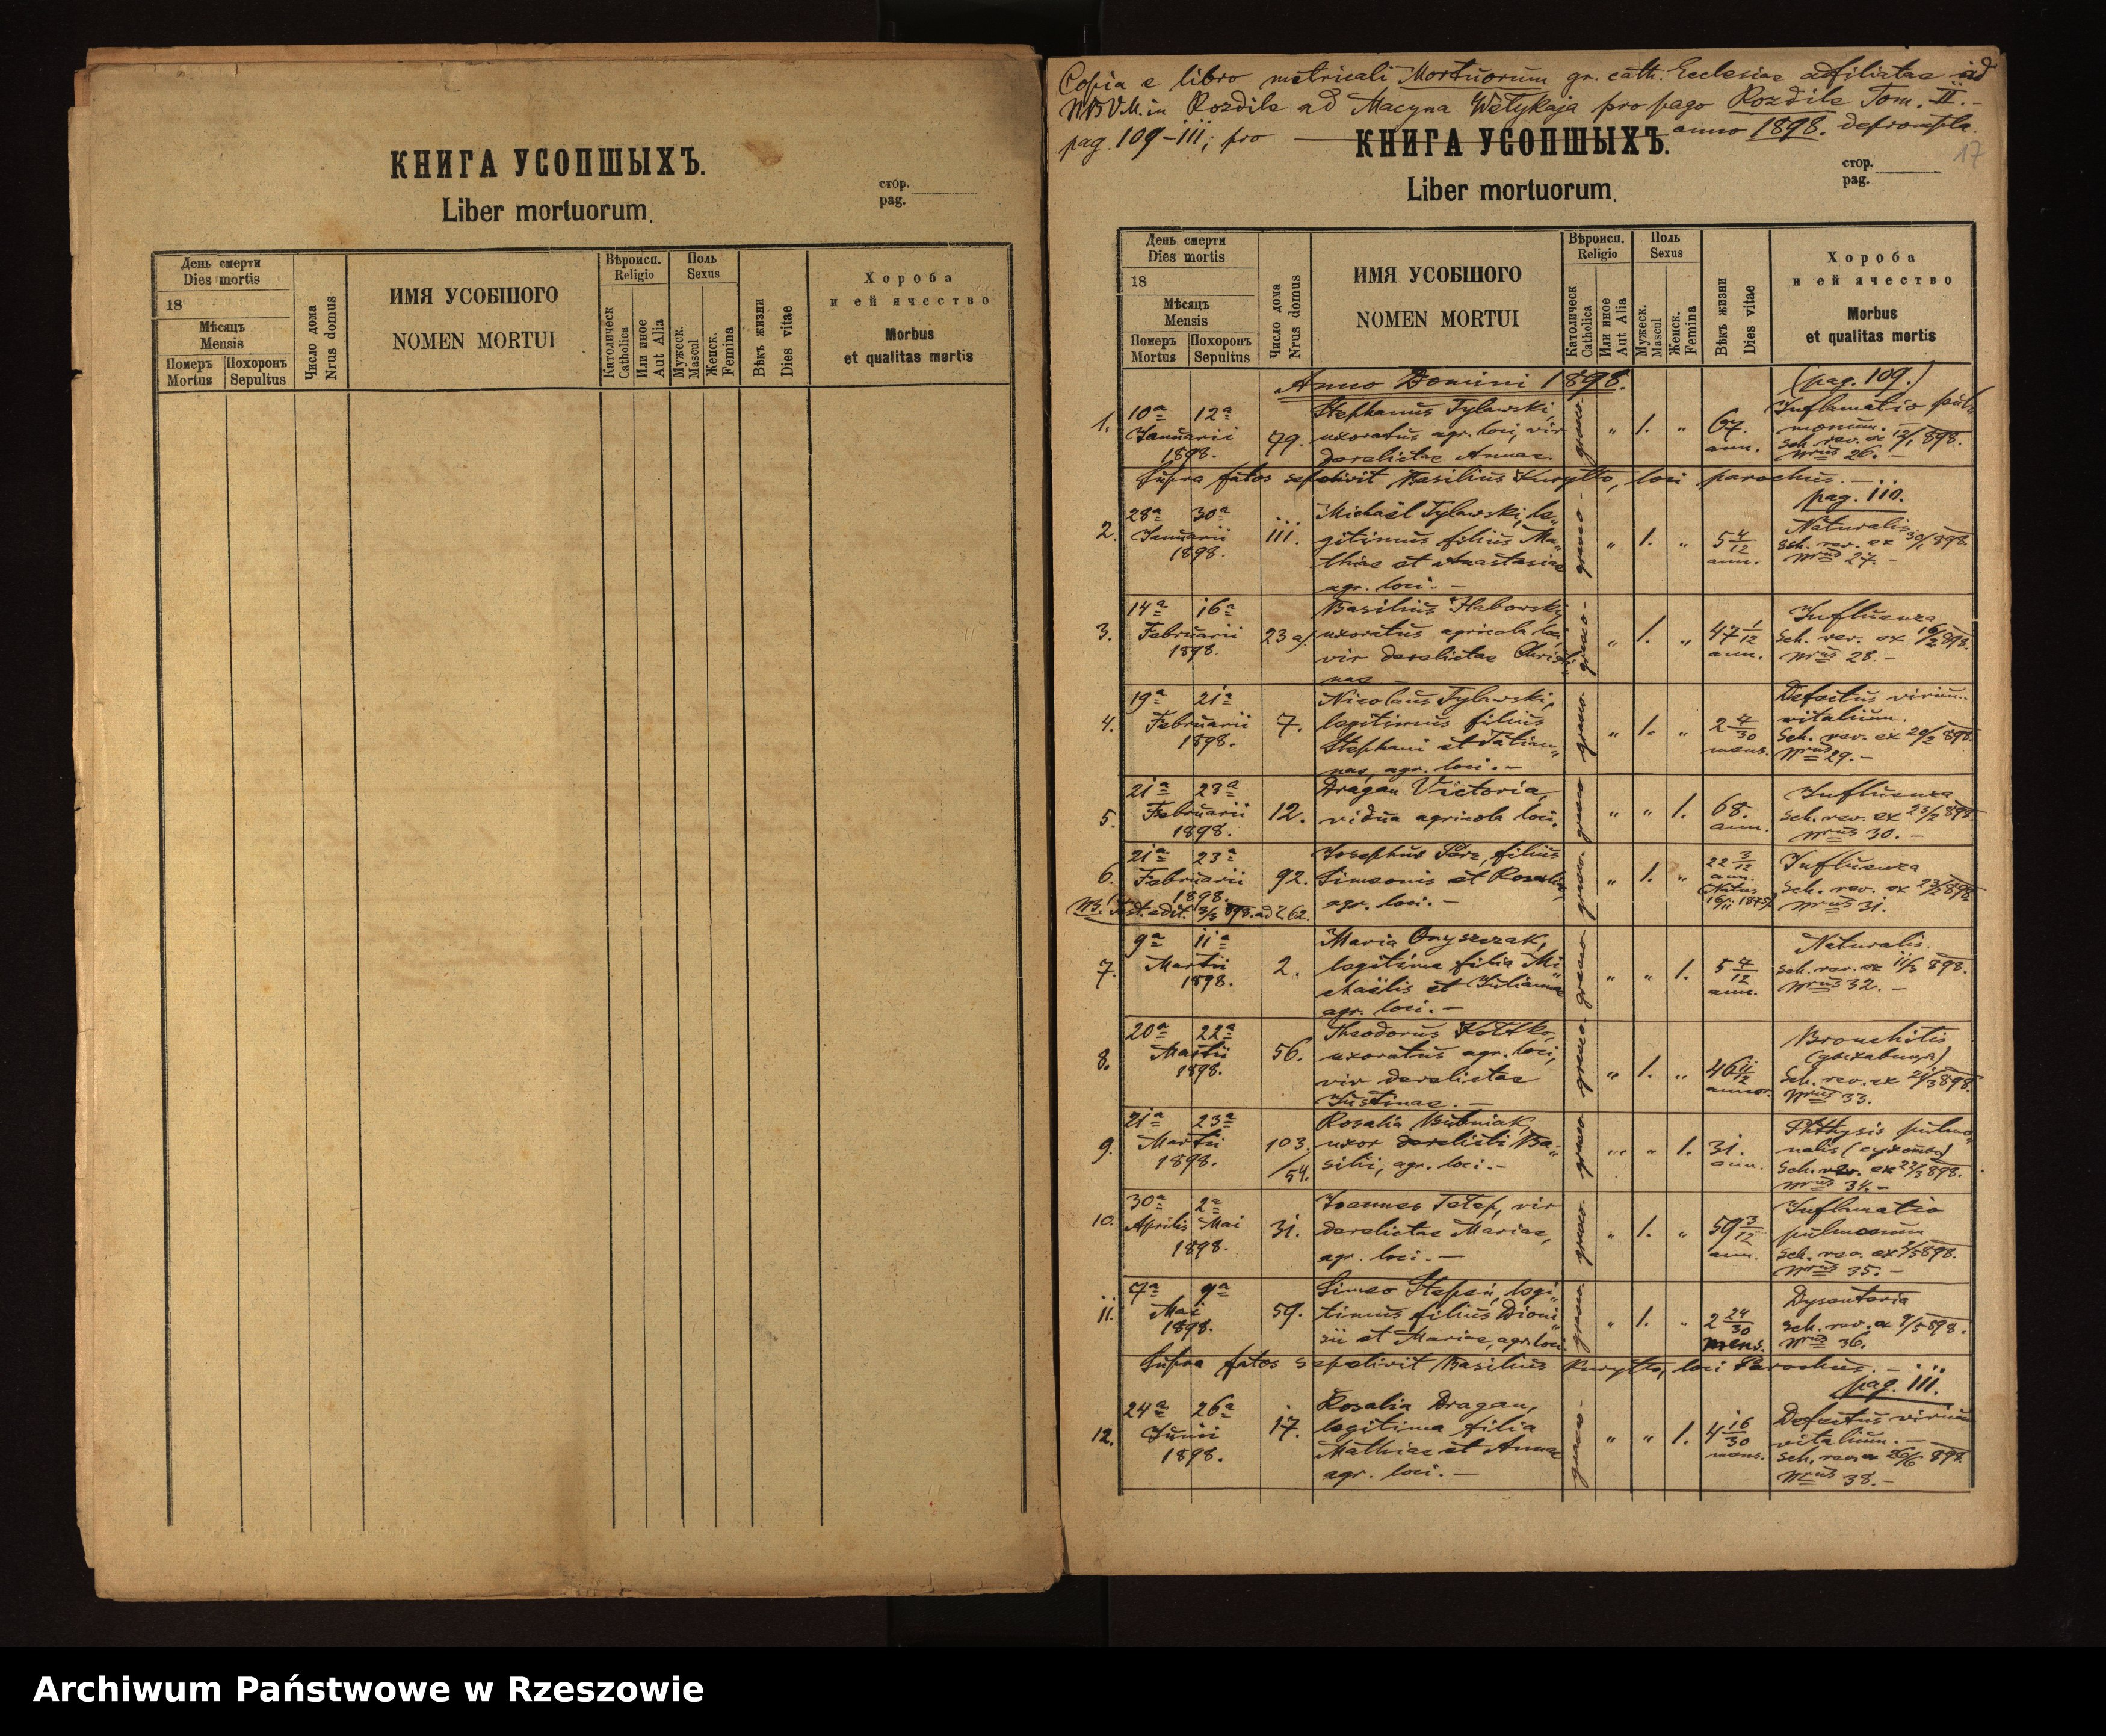 КНИГА УСОПШЫХЪ.
Liber mortuorum.
стор.
pag.
День смерти
Dies mortis
18
Мѣсяцъ
Mensis
Померъ
Mortus
Похоронъ
Sepultus
Число дома
Nrus domus
ИМЯ УСОБШОГО
NOMEN MORTUI
Вѣроисп.
Religio
Католическ
Catholica
Или иное
Aut Alia
Поль
Sexus
Мужеск.
Mascul
Женск.
Femina
Вѣкъ жизни
Dies vitae
Хороба
и ей ячество
Morbus
et qualitas mortis
Copia e libro metricali Mortuorum gr. cath. Ecclesiae adfiliatae ad
NBVM. in Rozdile ad Macyna Wełykaja pro pago Rozdile Tom. II. -
pag. 109-111; pro anno 1898. deprompta.
17
КНИГА УСОПШЫХЪ.
Liber mortuorum.
стор.
pag.
День смерти
Dies mortis
18
Мѣсяцъ
Mensis
Померъ
Mortus
Похоронъ
Sepultus
Число дома
Nrus domus
ИМЯ УСОБШОГО
NOMEN MORTUI
Вѣроисп.
Religio
Католическ
Catholica
Или иное
Aut Alia
Поль
Sexus
Мужеск.
Mascul
Женск.
Femina
Вѣкъ жизни
Dies vitae
Хороба
и ей ячество
Morbus
et qualitas mortis
Anno Domini 1898. (pag. 109.)
1. 10a 12a Januarii 1898. 79.
Stephanus Tylawski,
uxoratus agr. loci, vir
derelictae Annae.
graeco " 1. " 67. ann.
Inflamatio pul-
monum.
Sch. rev. ex 12/1 898.
Nrus 26. -
Supra fatos sepelivit Basilius Kuryłło, loci parochus. -
pag. 110.
2. 28a 30a Januarii 1898. 111.
Michaël Tylawski, le-
gitimus filius Ma-
thiae et Anastasiae
agr. loci. -
graeco " 1. " 5 4/12 ann.
Naturalis
Sch. rev. ex 30/1 898.
Nrus 27. -
3. 14a 16a Februarii 1898. 23 a/
Basilius Habowski,
uxoratus agricola loci,
vir derelictae Christi-
nae -
graeco " 1. " 47 1/12 ann.
Influenza
Sch. rev. ex 16/2 898.
Nrus 28. -
4. 19a 21a Februarii 1898. 7.
Nicolaus Tylawski,
legitimus filius
Stephani et Tatian-
nae, agr. loci. -
graeco " 1. " 2 4/30 mens.
Defectus virium
vitalium.
Sch. rev. ex 20/2 898.
Nrus 29. -
5. 21a 23a Februarii 1898. 12.
Dragan Victoria,
vidua agricola loci.
graeco " " 1. 68. ann.
Influenza
Sch. rev. ex 23/2 898
Nrus 30. -
6. 21a 23a Februarii 1898. 92.
Josephus Perz, filius
Simeonis et Rosaliae
agr. loci. -
graeco " 1. " 22 3/12 ann.
Natus
Influenza
Sch. rev. ex 23/2 898
Nrus 31.
NB. Test. edit.
7. 9a 11a Martii 1898. 2.
Maria Onyszczak,
legitima filia Mi-
chaëlis et Julianae
agr. loci. -
graeco " " 1. 5 4/12 ann.
Naturalis.
Sch. rev. ex 11/3 898.
Nrus 32. -
8. 20a 22a Martii 1898. 56.
Theodorus Kottko,
uxoratus agr. loci,
vir derelictae
Justinae. -
graeco " 1. " 46 annor.
Bronchitis
Sch. rev. ex 21/3 898.
Nrus 33.
9. 21a 23a Martii 1898. 103./54.
Rosalia Bubniak,
uxor derelicti Ba-
silii, agr. loci. -
graeco " " 1. 31. ann.
Phthysis pulmo-
nalis
Sch. rev. ex 22/3 898.
Nrus 34. -
10. 30a Aprilis 2a Mai 1898. 31.
Joannes Telep, vir
derelictae Mariae,
agr. loci. -
graeco " 1. " 59 3/12 ann.
Inflamatio
pulmonum
Sch. rev. ex 2/5 898.
Nrus 35. -
11. 7a 9a Mai 1898. 59.
Simeo Stepeń, legi-
timus filius Dioni-
sii et Mariae, agr. loci.
graeco " 1. " 2 24/30 mens.
Dysenteria
Sch. rev. ex 9/5 898.
Nrus 36.
Supra fatos sepelivit Basilius Kuryłło, loci Parochus. -
pag. 111.
12. 24a 26a Junii 1898. 17.
Rosalia Dragan,
legitima filia
Mathiae et Annae
agr. loci. -
graeco " " 1. 4 16/30 mens.
Defectus virium
vitalium. -
Sch. rev. ex 26/6 898.
Nrus 38. -
Archiwum Państwowe w Rzeszowie